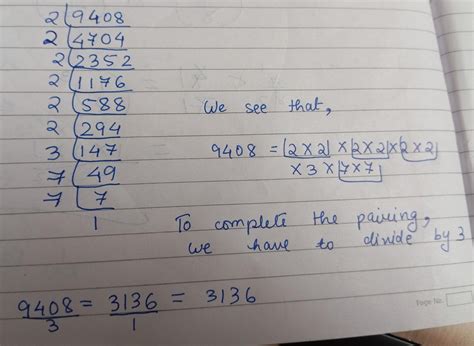 2 | 9408
2 | 4704
2 | 2352
2 | 1176
2 | 588
2 | 294
3 | 147
7 | 49
7 | 7
1
We see that,
9408 = 2 × 2 × 2 × 2 × 2 × 2
× 3 × 7 × 7
To complete the pairing,
we have to divide by 3
9408/3 = 3136/1 = 3136
Page No.